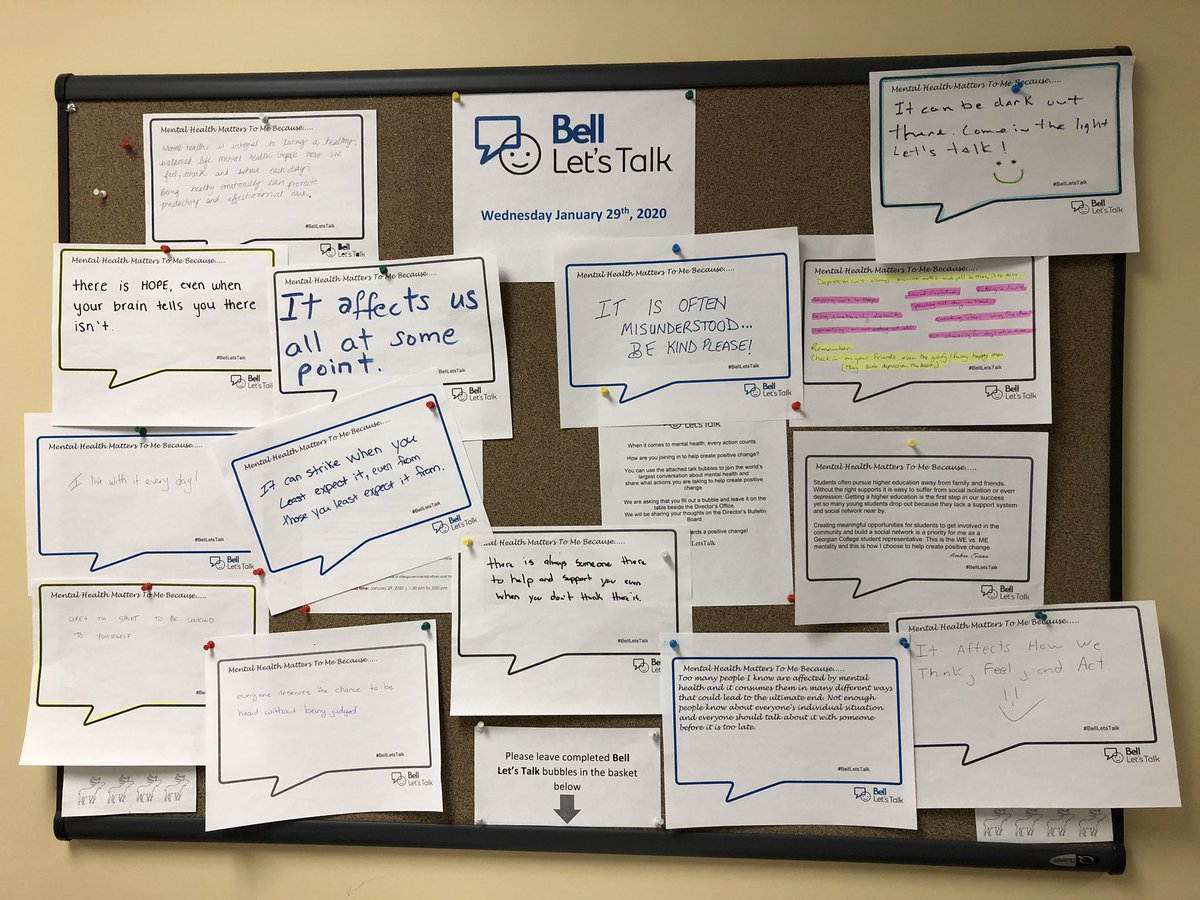 Bell
Let's Talk
Wednesday January 29th, 2020
Mental Health Matters To Me Because.....
Mental health is integral to living a healthy,
balanced life. mental health impacts how we
feel, think and behave each day.
Being healthy emotionally can promote
productivity and effectiveness at work.
#BellLetsTalk
Bell
Let's Talk
Mental Health Matters To Me Because.....
It can be dark out
there. Come in the light
Let's talk!
#BellLetsTalk
Bell
Let's Talk
Mental Health Matters To Me Because.....
there is HOPE, even when
your brain tells you there
isn't.
#BellLetsTalk
Bell
Let's Talk
Mental Health Matters To Me Because.....
It affects us
all at some
point.
#BellLetsTalk
Bell
Let's Talk
Mental Health Matters To Me Because.....
IT IS OFTEN
MISUNDERSTOOD...
BE KIND PLEASE!
#BellLetsTalk
Bell
Let's Talk
Mental Health Matters To Me Because.....
Depression isn't always
Social Isolation
spending all day in bed
Being emotionally distant
not eating at all
Remember
Check in on your friends, even the goofy/funny happy ones
(They hide depression the best)
#BellLetsTalk
Bell
Let's Talk
Mental Health Matters To Me Because.....
I live with it every day!
#BellLetsTalk
Bell
Let's Talk
Mental Health Matters To Me Because.....
It can strike when you
Least expect it, even from
those you least expect it from.
#BellLetsTalk
Bell
Let's Talk
Let's Talk
When it comes to mental health, every action counts.
How are you joining in to help create positive change?
You can use the attached talk bubbles to join the world's
largest conversation about mental health and
share what actions you are taking to help create positive
change.
We are asking that you fill out a bubble and leave it on the
table beside the Director's Office.
We will be sharing your thoughts on the Director's Bulletin
Board.
ards a positive change!
LetsTalk
Mental Health Matters To Me Because.....
Students often pursue higher education away from family and friends.
Without the right supports it is easy to suffer from social isolation or even
depression. Getting a higher education is the first step in our success
yet so many young students drop out because they lack a support system
and social network near by.
Creating meaningful opportunities for students to get involved in the
community and build a social network is a priority for me as a
Georgian College student representative. This is the WE vs. ME
mentality and this is how I choose to help create positive change.
Amber
#BellLetsTalk
Bell
Let's Talk
of Intergovernmental Affairs and
Time: January 29, 2020 | 1:00 pm to 3:00 pm
Mental Health Matters To Me Because.....
there is always someone there
to help and support you even
when you don't think there is.
#BellLetsTalk
Be
Le
Mental Health Matters To Me Because.....
LIFE'S TOO SHORT TO BE UNKIND
TO YOURSELF
Mental Health Matters To Me Because.....
everyone deserves the chance to be
heard without being judged
#BellLetsTalk
Bell
Let's Talk
Mental Health Matters To Me Because.....
Too many people I know are affected by mental
health and it consumes them in many different ways
that could lead to the ultimate end. Not enough
people know about everyone's individual situation
and everyone should talk about it with someone
before it is too late.
#BellLetsTalk
Bell
Let's Talk
Mental Health Matters To Me Because.....
It Affects How We
Think, Feel, and Act
!!
#BellLetsTalk
Bell
Let's Talk
Please leave completed Bell
Let's Talk bubbles in the basket
below